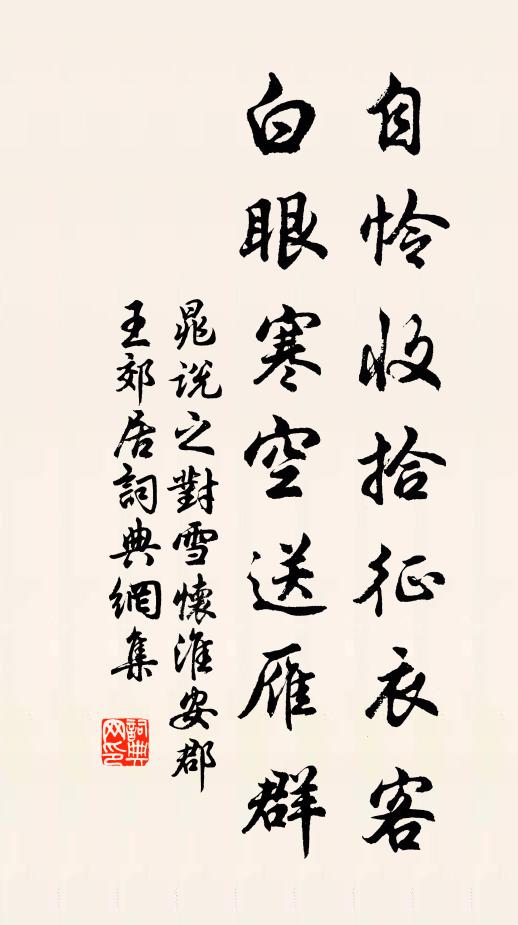 自怜收拾征衣客
白眼寒空送雁群
晁說之對雪懷淮安郡
王郊居詞典網集
詞典
网印